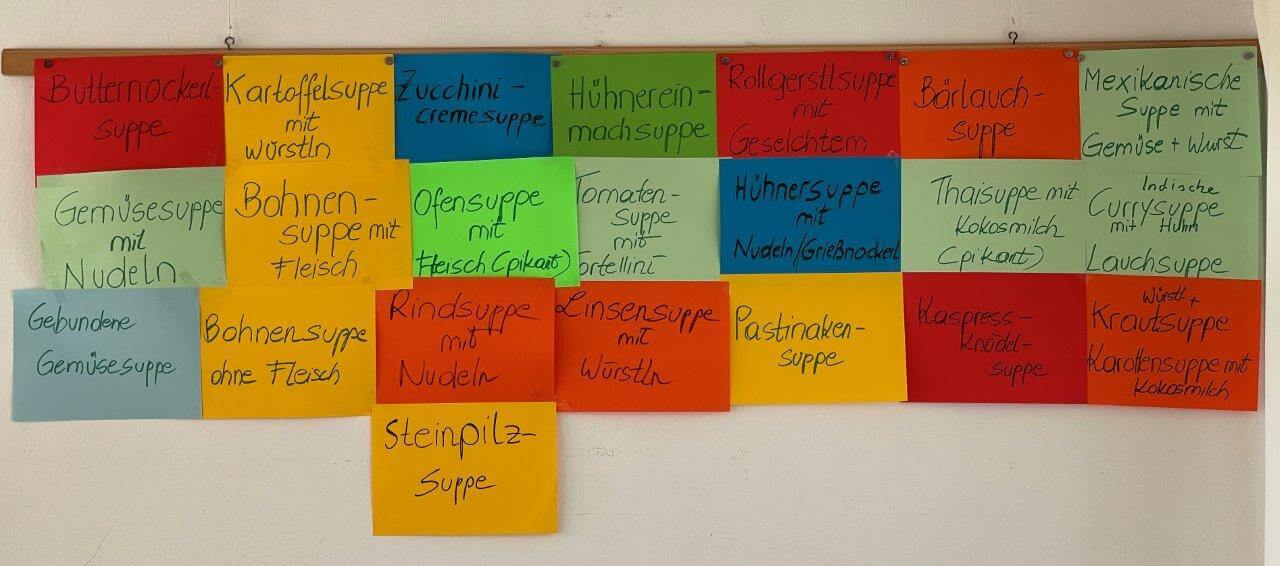 Butternockerl-
suppe
Kartoffelsuppe
mit
Würstln
Zucchini-
cremesuppe
Hühnerein-
machsuppe
Rollgerstlsuppe
mit
Geselchtem
Bärlauch-
suppe
Mexikanische
Suppe mit
Gemüse + Wurst
Gemüsesuppe
mit
Nudeln
Bohnen-
suppe mit
Fleisch
Ofensuppe
mit
Fleisch (pikant)
Tomaten-
suppe
mit
ortellini
Hühnersuppe
mit
Nudeln/Grießnockerl
Thaisuppe mit
Kokosmilch
(pikant)
Indische
Currysuppe
mit Huhn
Lauchsuppe
Gebundene
Gemüsesuppe
Bohnensuppe
ohne Fleisch
Rindsuppe
mit
Nudeln
Linsensuppe
mit
Würstln
Pastinaken-
suppe
Kaspress-
knödel-
suppe
Würstl +
Krautsuppe
Karottensuppe mit
Kokosmilch
Steinpilz-
Suppe